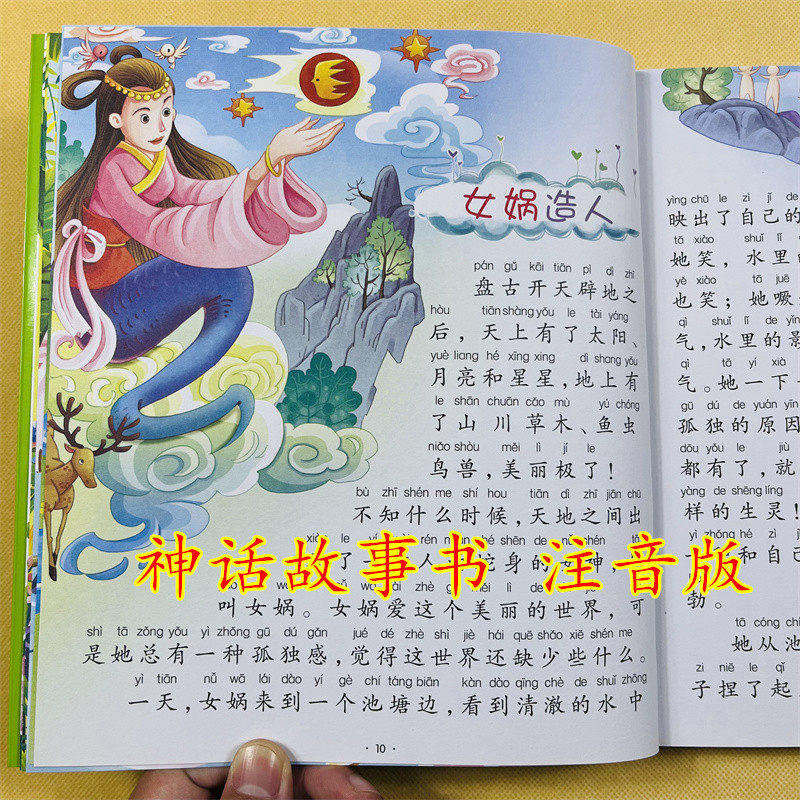 女娲造人
pán gǔ kāi tiān pì dì zhī
盘古开天辟地之
hòu tiān shàng yǒu le tài yáng
后,天上有了太阳、
yuè liang hé xīng xing dì shang yǒu
月亮和星星,地上有
le shān chuān cǎo mù yú chóng
了山川草木、鱼虫
niǎo shòu měi lì jí le
鸟兽,美丽极了!
bù zhī shén me shí hou tiān dì zhī jiān chū
不知什么时候,天地之间出
神话故事书 注音版
叫女娲。女娲爱这个美丽的世界,可
shì tā zǒng yǒu yì zhǒng gū dú gǎn jué dé zhè shì jiè hái quē shǎo xiē shén me
是她总有一种孤独感,觉得这世界还缺少些什么。
yì tiān nǚ wā lái dào yí gè chí táng biān kàn dào qīng chè de shuǐ zhōng
一天,女娲来到一个池塘边,看到清澈的水中
·10·
yìng chū le zì jǐ de
映出了自己的
tā xiào shuǐ lǐ
她笑,水里
yě xiào tā juē
也笑;她噘
qì shuǐ lǐ de yǐn
气,水里的影
qì tā yí xià
气。她一下
gū dú de yuán yīn
孤独的原因
都有了,就
yàng de shēng líng
样的生灵!
yì zhǒng hé zì
和自己
勃。
tā cóng chí
她从池
zi niē le qǐ
子捏了起